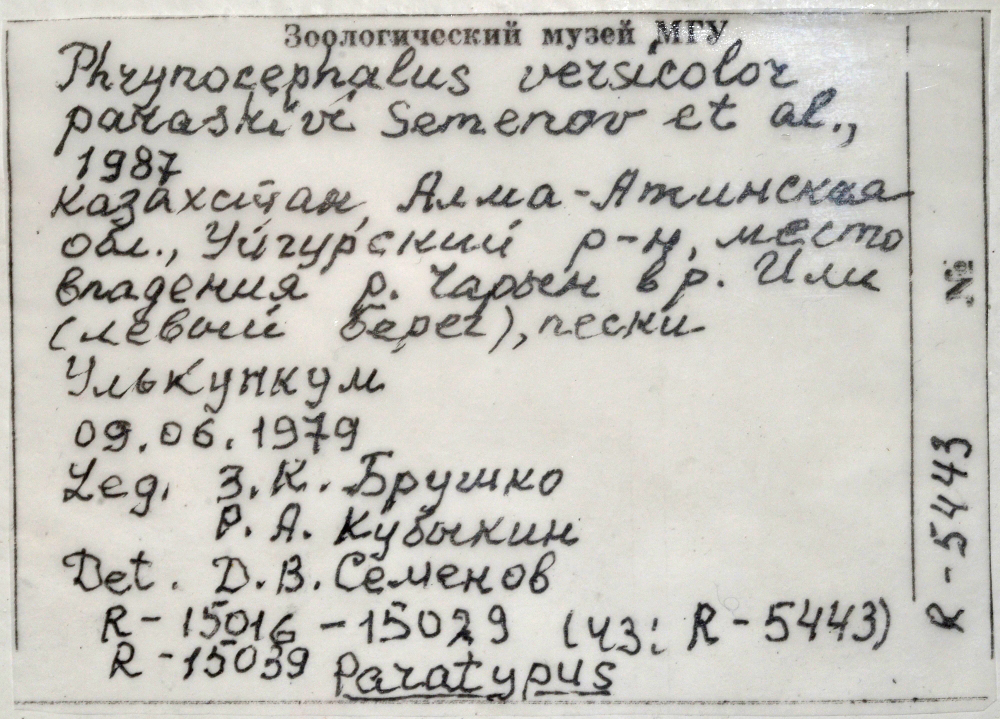 Зоологический музей МГУ
Phrynocephalus versicolor
paraskivi Semenov et al.,
1987
Казахстан, Алма-Атинская
обл., Уйгурский р-н, место
впадения р. Чарын в р. Или
(левый берег), пески
Улькункум
09.06.1979
Leg. З.К. Брушко
Р.А. Кубыкин
Det. Д.В. Семенов
R-15016 - 15029 (из: R-5443)
R-15039 Paratypus
№ R-5443